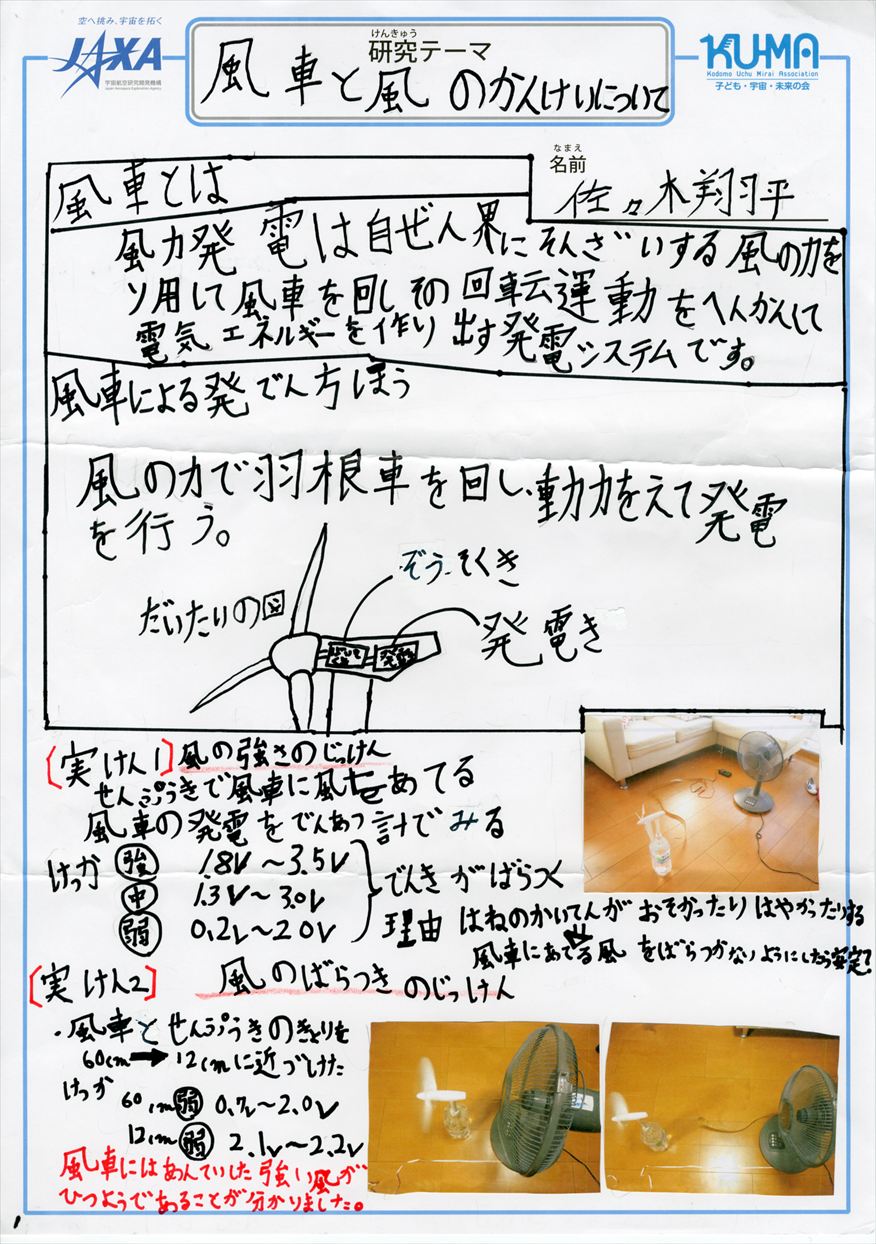 空へ挑み、宇宙を拓く
JAXA
宇宙航空研究開発機構
Japan Aerospace Exploration Agency
けんきゅう
研究テーマ
風車と風のかんけいについて
KU-MA
Kodomo Uchu Mirai Association
子ども・宇宙・未来の会
なまえ
名前
佐々木翔平
風車とは
風力発電は自ぜん界にそんざいする風の力を
リ用して風車を回しその回転運動をへんかんして
電気エネルギーを作り出す発電システムです。
風車による発でん方ほう
風の力で羽根車を回し、動力をえて発電
を行う。
だいたいの図
ぞうそくき
発電き
[実けん1]風の強さのじっけん
せんぷうきで風車に風をあてる
風車の発電をでんあつ計でみる
けっか 強 1.8V〜3.5V
中 1.3V〜3.0V
弱 0.2V〜2.0V
でんきがばらつく
理由 はねのかいてんがおそかったりはやかったりする
風車にあてる風をばらつかないようにしたら安定?
[実けん2] 風のばらつきのじっけん
・風車とせんぷうきのきょりを
60cm→12cmに近づけた
けっか
60cm弱 0.7V〜2.0V
12cm弱 2.1V〜2.2V
風車にはあんていした強い風が
ひつようであることが分かりました。
1